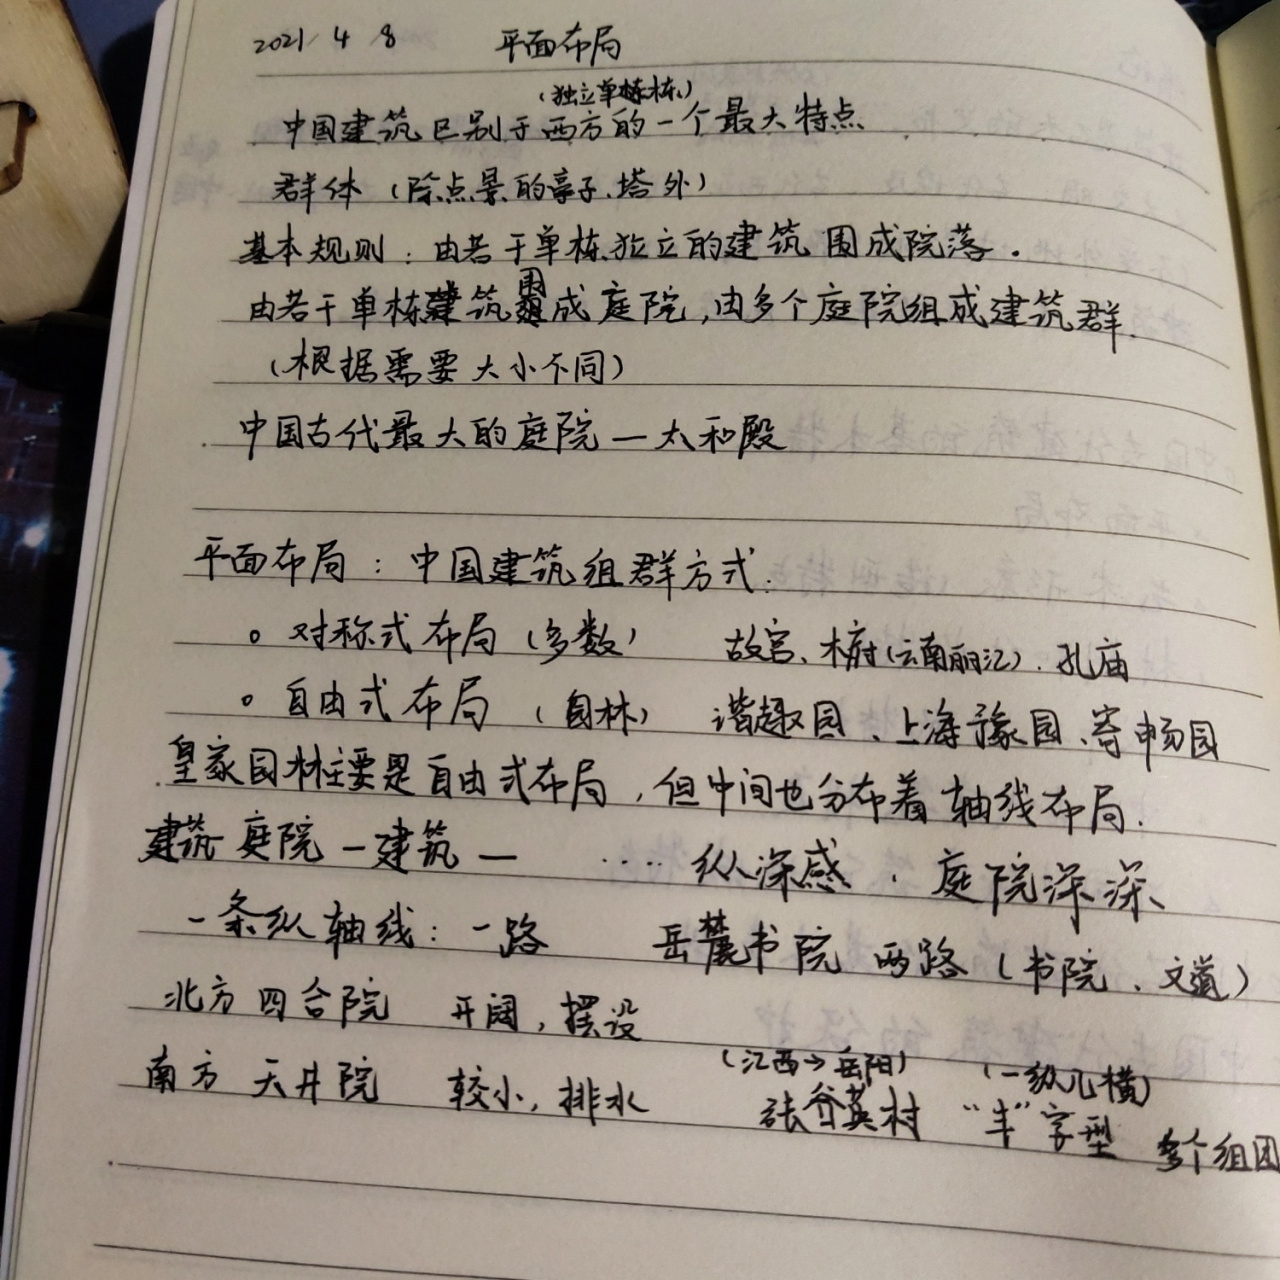 2021/4/8 平面布局
(独立单栋栋)
中国建筑区别于西方的一个最大特点
群体(除点景的亭子、塔外)
基本规则:由若干单栋独立的建筑围成院落.
由若干单栋建筑围成庭院,由多个庭院组成建筑群.
(根据需要大小不同)
中国古代最大的庭院—太和殿
平面布局:中国建筑组群方式:
。对称式布局(多数) 故宫、木府(云南丽江)、孔庙
。自由式布局(园林) 谐趣园、上海豫园、寄畅园
皇家园林主要是自由式布局,但中间也分布着轴线布局.
建筑庭院—建筑— ····· 纵深感、庭院深深、
一条纵轴线:一路 岳麓书院 两路(书院、文道)
北方四合院 开阔,摆设
南方天井院 较小,排水 (江西→岳阳) 张谷英村 (一纵几横) “丰”字型 多个组团